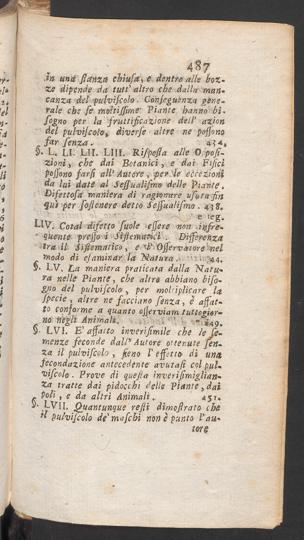 487
in una stanza chiusa, e dentre alle boz-
ze dipenda da tutt'altro che dalla man-
canza del pulviscolo. Conseguenza gene-
rale che se moltissime Piante hanno bi-
sogno per la fruttificazione dell'azion
del pulviscolo, diverse altre ne possono
far senza. 434.
§. L. LI. LII. LIII. Risposta alle Oppo-
sizioni, che dai Botanici, e dai Fisici
possono farsi all'Autore, per le eccezioni
da lui date al Sessualismo delle Piante.
Difettosa maniera di ragionare usata fin
qui per sostenere detto Sessualismo. 438.
e seg.
LIV. Cotal difetto suole essere non infre-
quente presso i Sistematici. Differenza
tra il Sistematico, e l'Osservatore nel
modo di esaminar la Natura. 44.
§. LV. La maniera praticata dalla Natu-
ra nelle Piante, che altre abbiano biso-
gno del pulviscolo, per moltiplicare la
specie, altre ne facciano senza, è affat-
to conforme a quanto osserviam tuttogior-
no negli Animali. 449.
§. LVI. E' affatto inverisimile che le se-
menze feconde dall'Autore ottenute sen-
za il pulviscolo, sieno l'effetto di una
fecondazione antecedente avutasi col pul-
viscolo. Prove di questa inverisimiglian-
za tratte dai pidocchi delle Piante, dai
poli, e da altri Animali. 451.
§. LVII. Quantunque resti dimostrato che
il pulviscolo de' maschi non è punto l'au-
tore